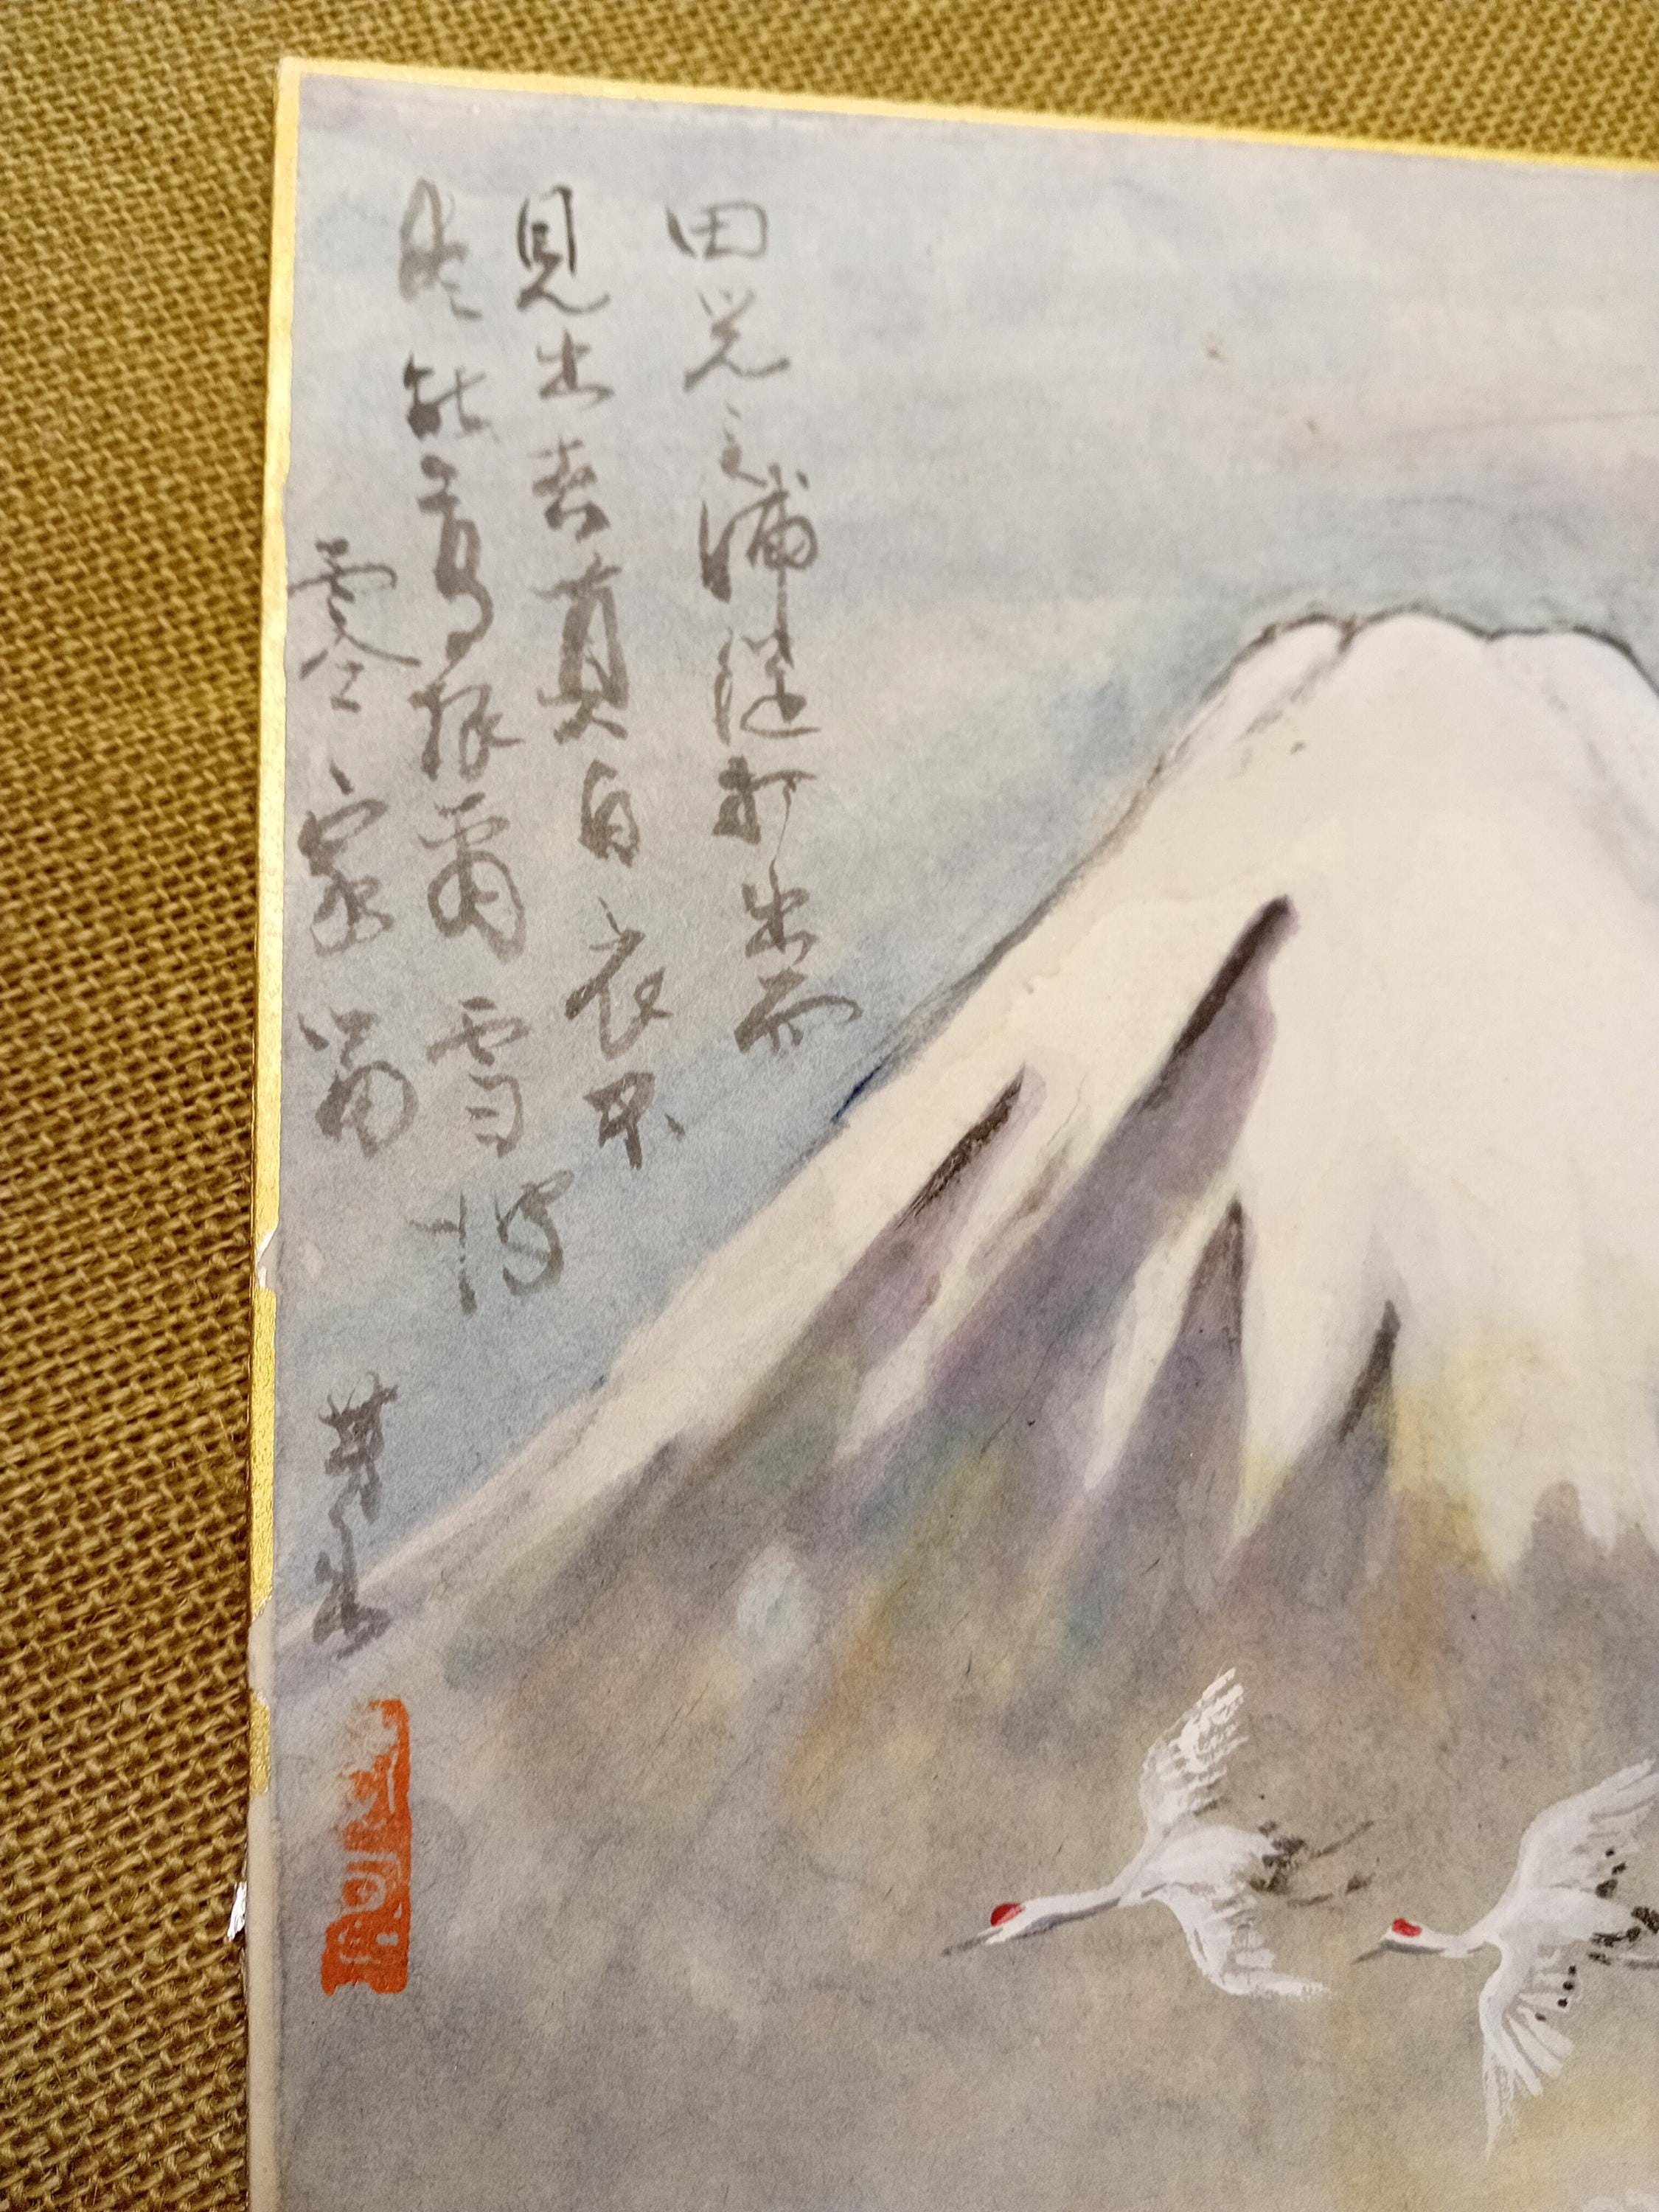 田児之浦従打出而
見出者真白衣不
尽能高根爾雪波
零家留